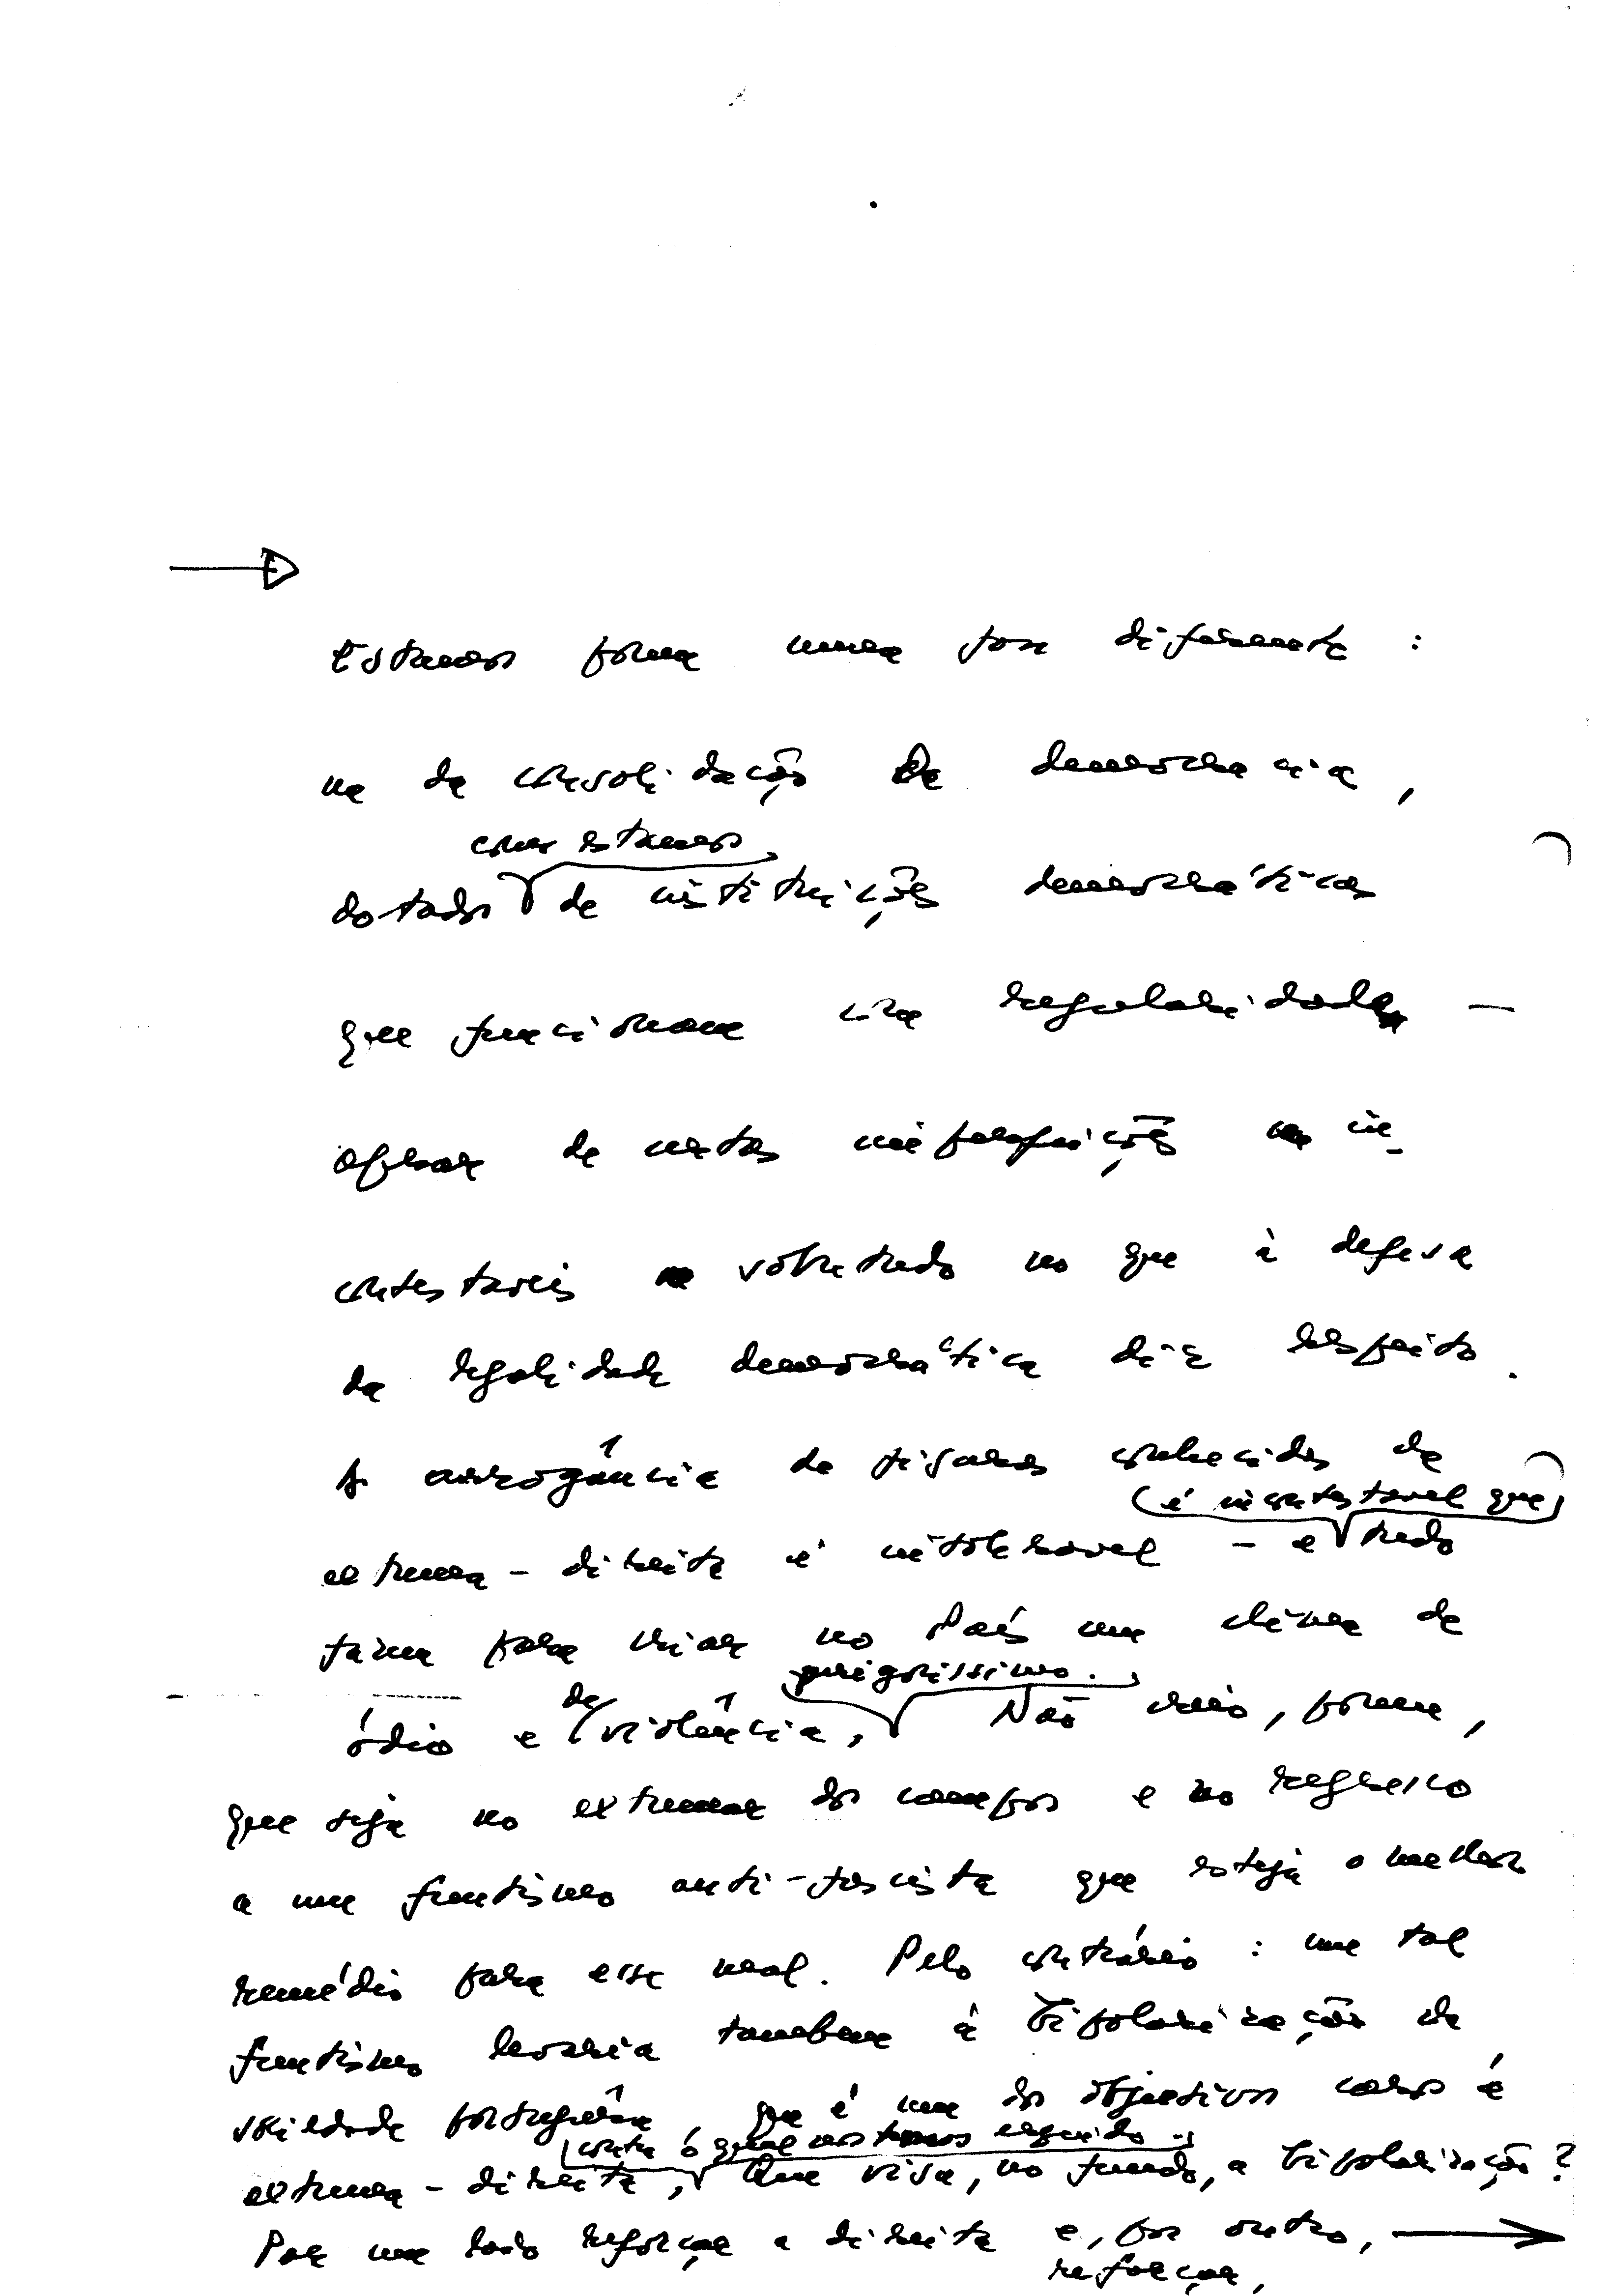 Estamos porém numa fase diferente :
na da consolidação da democracia,
como estamos
dotados de instituições democráticas
que funcionam com regularidade —
apesar de certas imperfeições in-
contestáveis sobretudo no que à defesa
da legalidade democrática diz respeito.
A arrogância de figuras conhecidas da
é incontestável que
extrema-direita é intolerável - e tudo
farão para criar no País um clima de
perigosíssimo.
ódio e de violência, Não creio, porém,
que seja no extremar dos campos e no regresso
a um frentismo anti-fascista que esteja o melhor
remédio para esse mal. Pelo contrário : um tal
frentismo levaria também à bipolarização da
sociedade portuguesa, que é um dos objectivos caros à
contra o qual nos temos erguido.
extrema-direita, Que visa, no fundo, a bipolarização?
Por um lado reforçar a direita e, por outro,
reforçar,